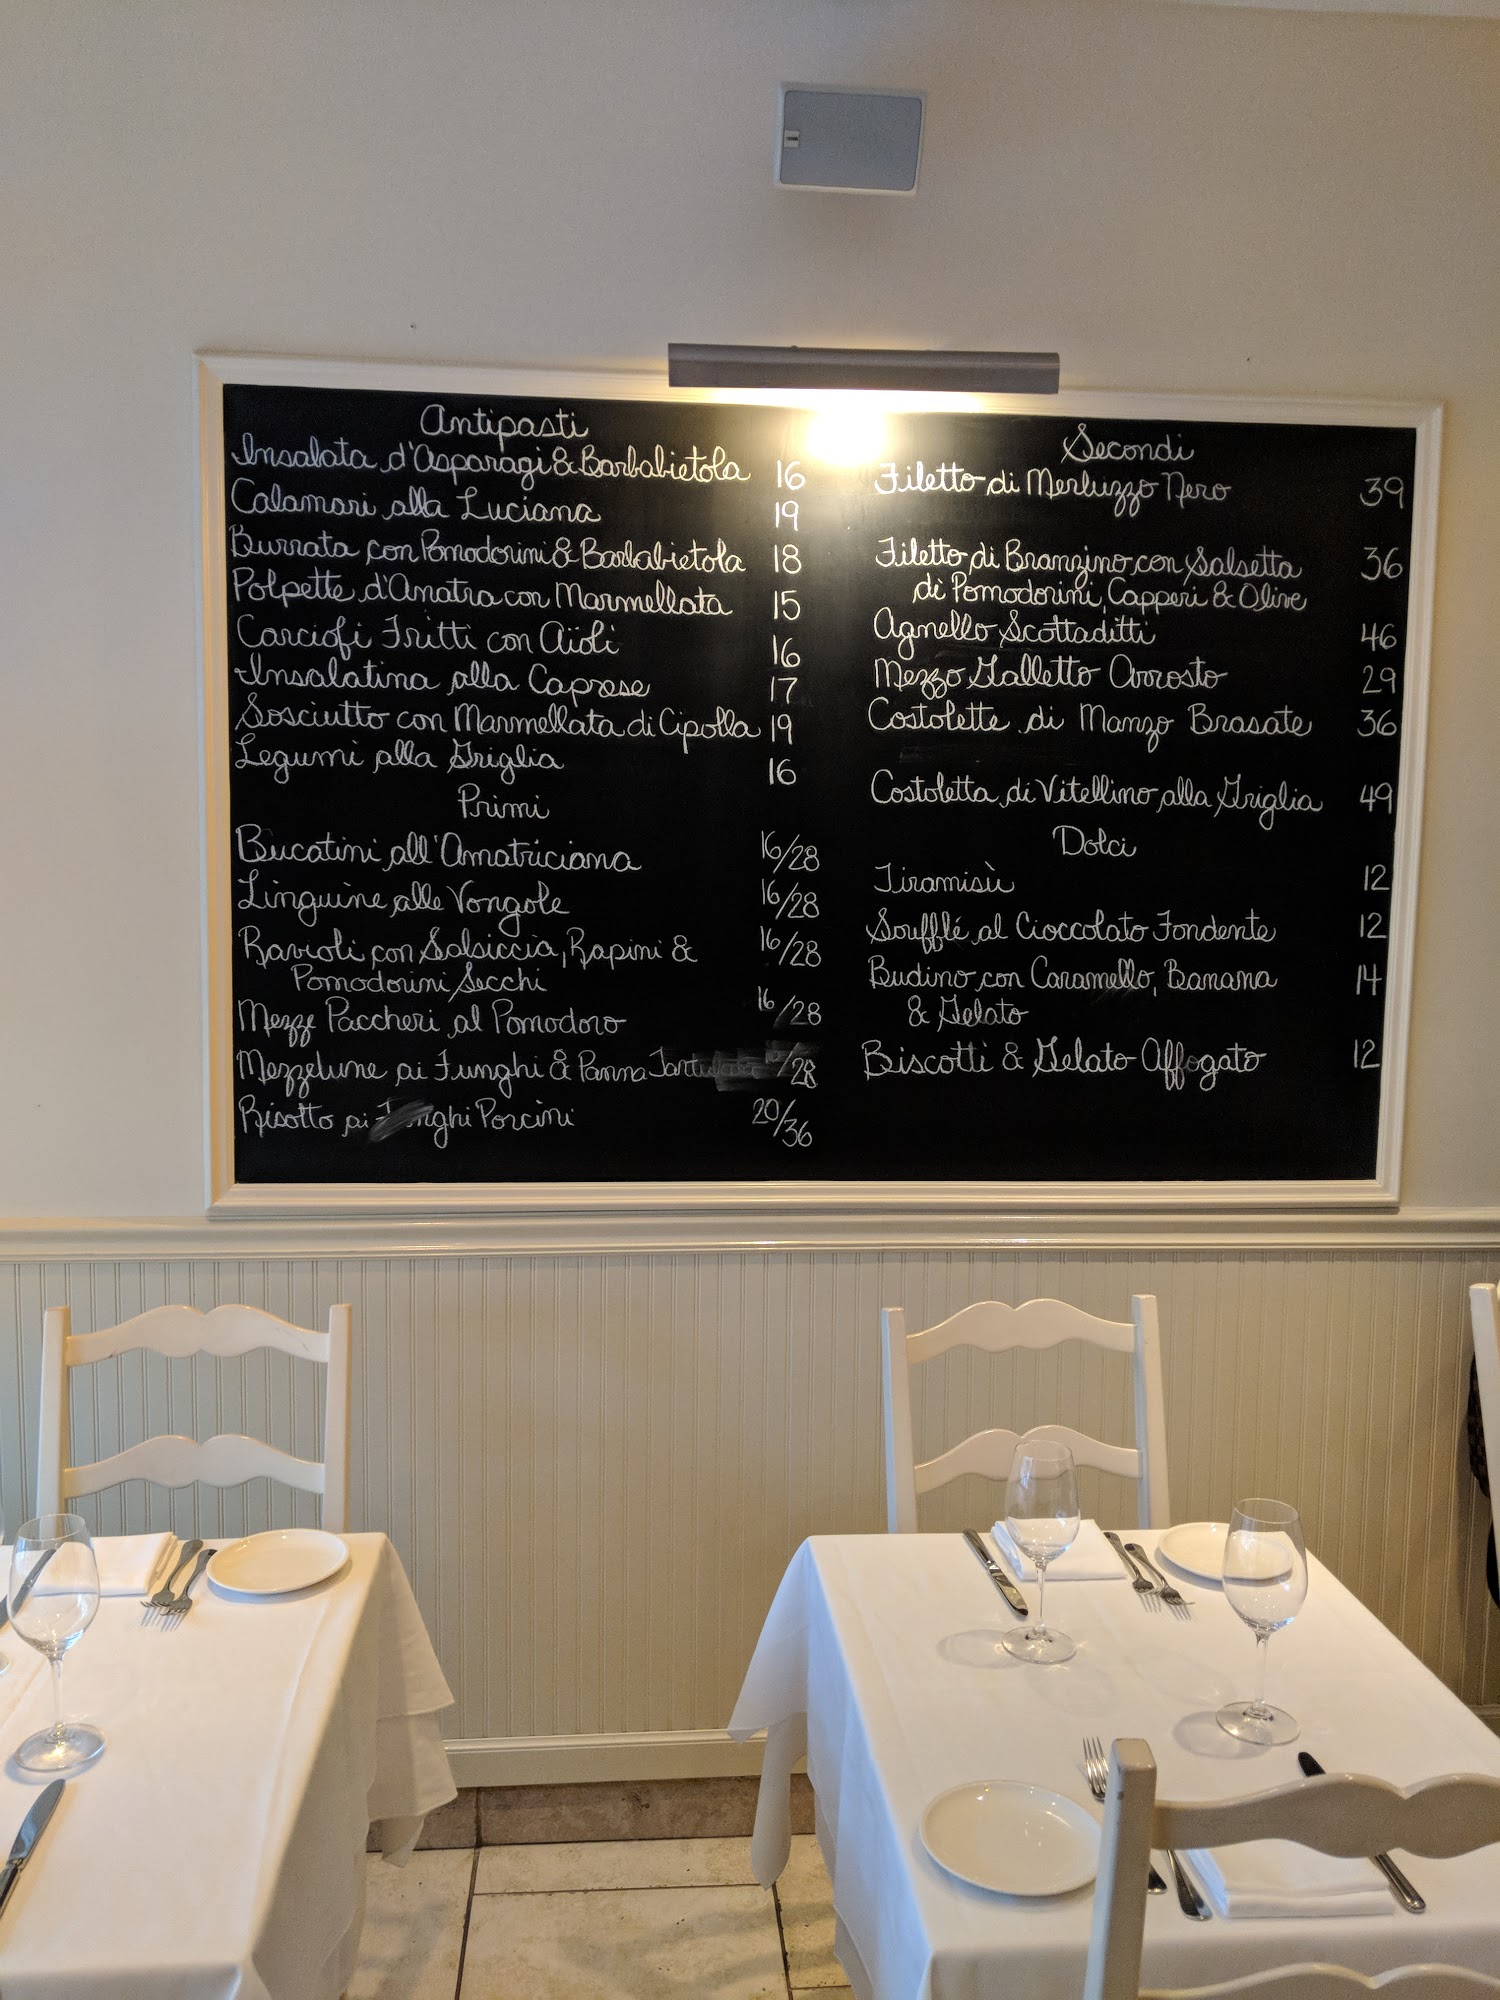 Antipasti
Insalata d'Asparagi & Barbabietola 16
Calamari alla Luciana 19
Burrata con Pomodorini & Barbabietola 18
Polpette d'Anatra con Marmellata 15
Carciofi Fritti con Aïoli 16
Insalatina alla Caprese 17
Sosciutto con Marmellata di Cipolla 19
Legumi alla Griglia 16
Primi
Bucatini all'Amatriciana 16/28
Linguine alle Vongole 16/28
Ravioli con Salsiccia, Rapini & 16/28
Pomodorini Secchi
Mezze Paccheri al Pomodoro 16/28
Mezzelune ai Funghi & Panna /28
Risotto ai Porcini 20/36
Secondi
Filetto di Merluzzo Nero 39
Filetto di Branzino con Salsetta 36
di Pomodorini, Capperi & Olive
Agnello Scottaditti 46
Mezzo Galletto Arrosto 29
Costolette di Manzo Brasate 36
Costoletta di Vitellino alla Griglia 49
Dolci
Tiramisù 12
Soufflé al Cioccolato Fondente 12
Budino con Caramello, Banana 14
& Gelato
Biscotti & Gelato Affogato 12